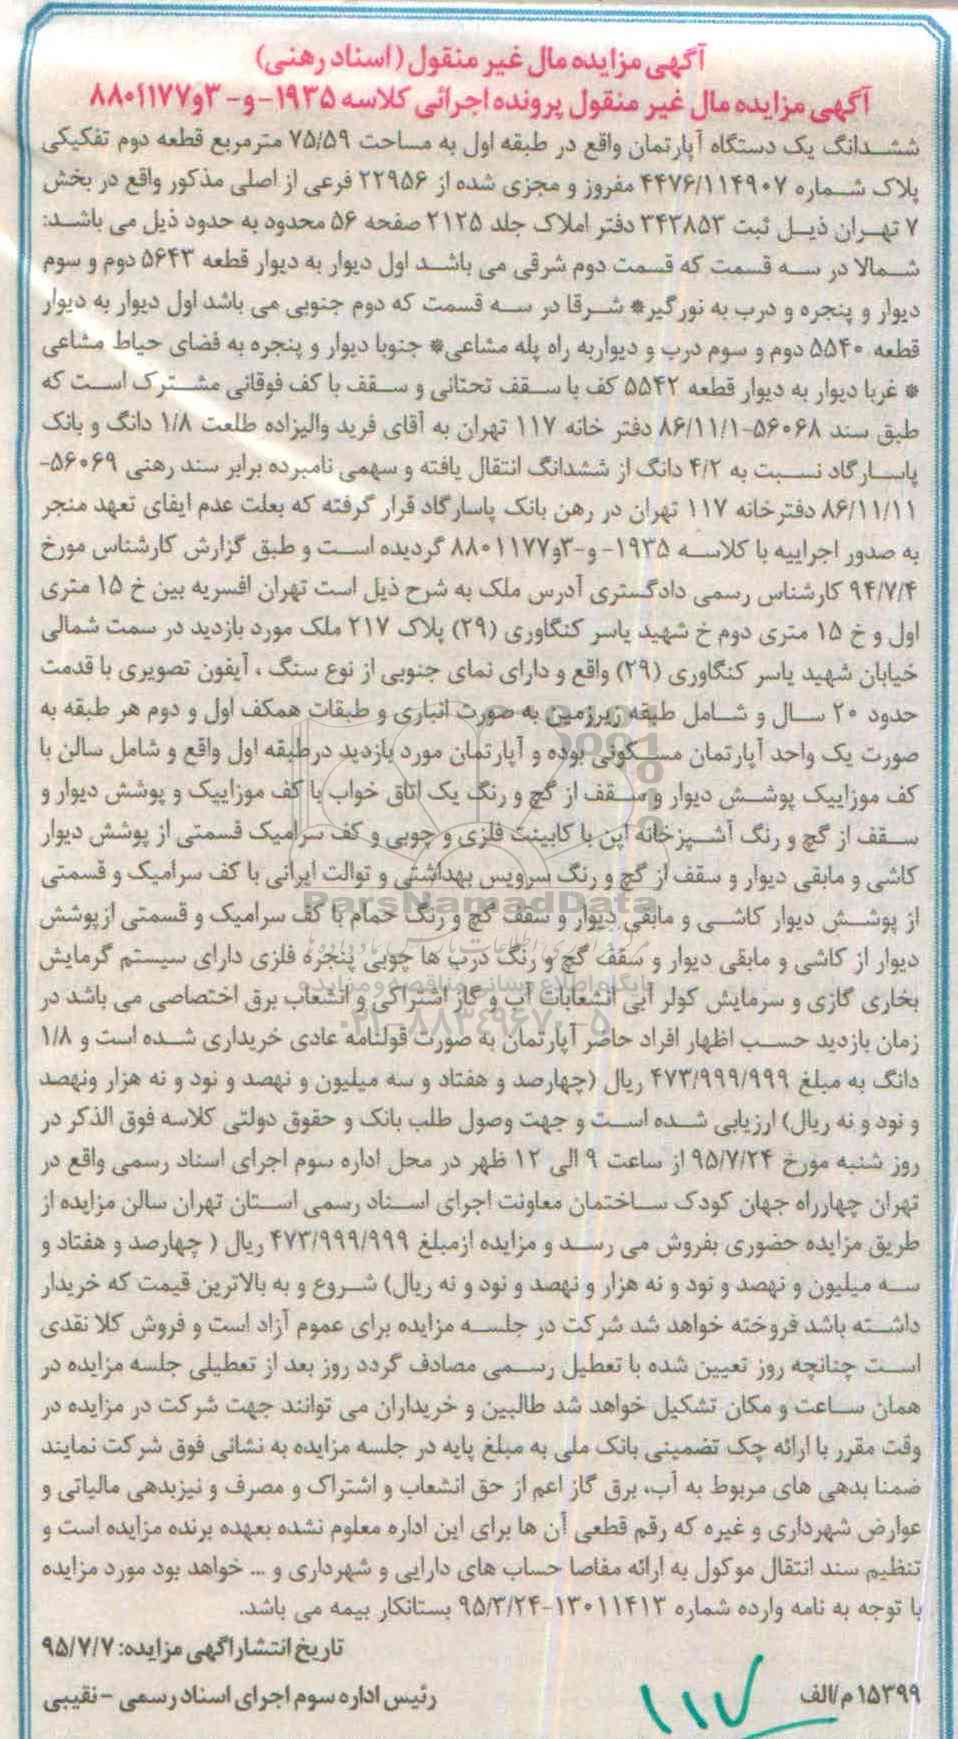 آگهی مزایده مال غیر منقول (اسناد رهنی)
آگهی مزایده مال غیر منقول پرونده اجرائی کلاسه ۱۹۳۵-و-۳و۸۸۰۱۱۷۷
ششدانگ یک دستگاه آپارتمان واقع در طبقه اول به مساحت ۷۵/۵۹ مترمربع قطعه دوم تفکیکی
پلاک شماره ۴۴۷۶/۱۱۴۹۰۷ مفروز و مجزی شده از ۲۲۹۵۶ فرعی از اصلی مذکور واقع در بخش
۷ تهران ذیل ثبت ۳۴۳۸۵۳ دفتر املاک جلد ۲۱۲۵ صفحه ۵۶ محدود به حدود ذیل می باشد:
شمالا در سه قسمت که قسمت دوم شرقی می باشد اول دیوار به دیوار قطعه ۵۶۴۳ دوم و سوم
دیوار و پنجره و درب به نورگیر* شرقا در سه قسمت که دوم جنوبی می باشد اول دیوار به دیوار
قطعه ۵۵۴۰ دوم و سوم درب و دیواربه راه پله مشاعی* جنوبا دیوار و پنجره به فضای حیاط مشاعی
* غربا دیوار به دیوار قطعه ۵۵۴۲ کف با سقف تحتانی و سقف با کف فوقانی مشترک است که
طبق سند ۵۶۰۶۸-۸۶/۱۱/۱ دفتر خانه ۱۱۷ تهران به آقای فرید والیزاده طلعت ۱/۸ دانگ و بانک
پاسارگاد نسبت به ۴/۲ دانگ از ششدانگ انتقال یافته و سهمی نامبرده برابر سند رهنی ۵۶۰۶۹-
۸۶/۱۱/۱۱ دفترخانه ۱۱۷ تهران در رهن بانک پاسارگاد قرار گرفته که بعلت عدم ایفای تعهد منجر
به صدور اجراییه با کلاسه ۱۹۳۵- و-۳و۸۸۰۱۱۷۷ گردیده است و طبق گزارش کارشناس مورخ
۹۴/۷/۴ کارشناس رسمی دادگستری آدرس ملک به شرح ذیل است تهران افسریه بین خ ۱۵ متری
اول و خ ۱۵ متری دوم خ شهید یاسر کنگاوری (۲۹) پلاک ۲۱۷ ملک مورد بازدید در سمت شمالی
خیابان شهید یاسر کنگاوری (۲۹) واقع و دارای نمای جنوبی از نوع سنگ ، آیفون تصویری با قدمت
حدود ۲۰ سال و شامل طبقه زیرزمین به صورت انباری و طبقات همکف اول و دوم هر طبقه به
صورت یک واحد آپارتمان مسکونی بوده و آپارتمان مورد بازدید درطبقه اول واقع و شامل سالن با
کف موزاییک پوشش دیوار و سقف از گچ و رنگ یک اتاق خواب با کف موزاییک و پوشش دیوار و
سقف از گچ و رنگ آشپزخانه اپن با کابینت فلزی و چوبی و کف سرامیک قسمتی از پوشش دیوار
کاشی و مابقی دیوار و سقف از گچ و رنگ سرویس بهداشتی و توالت ایرانی با کف سرامیک و قسمتی
از پوشش دیوار کاشی و مابقی دیوار و سقف گچ و رنگ حمام با کف سرامیک و قسمتی ازپوشش
دیوار از کاشی و مابقی دیوار و سقف گچ و رنگ درب ها چوبی پنجره فلزی دارای سیستم گرمایش
بخاری گازی و سرمایش کولر آبی انشعابات آب و گاز اشتراکی و انشعاب برق اختصاصی می باشد در
زمان بازدید حسب اظهار افراد حاضر آپارتمان به صورت قولنامه عادی خریداری شده است و ۱/۸
دانگ به مبلغ ۴۷۳/۹۹۹/۹۹۹ ریال (چهارصد و هفتاد و سه میلیون و نهصد و نود و نه هزار ونهصد
و نود و نه ریال) ارزیابی شده است و جهت وصول طلب بانک و حقوق دولتی کلاسه فوق الذکر در
روز شنبه مورخ ۹۵/۷/۲۴ از ساعت ۹ الی ۱۲ ظهر در محل اداره سوم اجرای اسناد رسمی واقع در
تهران چهارراه جهان کودک ساختمان معاونت اجرای اسناد رسمی استان تهران سالن مزایده از
طریق مزایده حضوری بفروش می رسد و مزایده ازمبلغ ۴۷۳/۹۹۹/۹۹۹ ریال ( چهارصد و هفتاد و
سه میلیون و نهصد و نود و نه هزار و نهصد و نود و نه ریال) شروع و به بالاترین قیمت که خریدار
داشته باشد فروخته خواهد شد شرکت در جلسه مزایده برای عموم آزاد است و فروش کلا نقدی
است چنانچه روز تعیین شده با تعطیل رسمی مصادف گردد روز بعد از تعطیلی جلسه مزایده در
همان ساعت و مکان تشکیل خواهد شد طالبین و خریداران می توانند جهت شرکت در مزایده در
وقت مقرر با ارائه چک تضمینی بانک ملی به مبلغ پایه در جلسه مزایده به نشانی فوق شرکت نمایند
ضمنا بدهی های مربوط به آب، برق گاز اعم از حق انشعاب و اشتراک و مصرف و نیزبدهی مالیاتی و
عوارض شهرداری و غیره که رقم قطعی آن ها برای این اداره معلوم نشده بعهده برنده مزایده است و
تنظیم سند انتقال موکول به ارائه مفاصا حساب های دارایی و شهرداری و ... خواهد بود مورد مزایده
با توجه به نامه وارده شماره ۱۳۰۱۱۴۱۳-۹۵/۳/۲۴ بستانکار بیمه می باشد.
تاریخ انتشارآگهی مزایده: ۹۵/۷/۷
۱۵۳۹۹م/الف رئیس اداره سوم اجرای اسناد رسمی - نقیبی
۱۱۷
ParsNamadData
پایگاه اطلاع رسانی مناقصه و مزایده